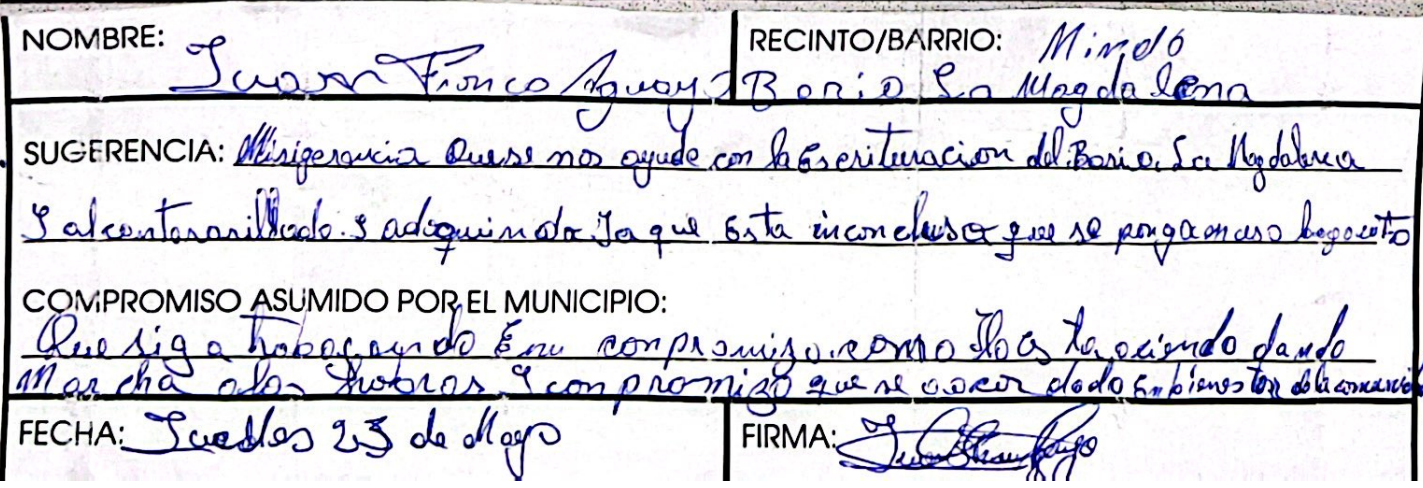 NOMBRE: Juan Franco Aguayo
RECINTO/BARRIO: Mindo
Bario La Magdalena
SUGERENCIA: Misigerencia Quese nos ayude con la Escrituracion del Bario La Magdalena
Y alcontararillado Y adoquinado Ya que Esta inconcluso que se ponga en uso
COMPROMISO ASUMIDO POR EL MUNICIPIO:
Que siga trabagando En conpromiso como lo esta aciendo dando
Marcha alas hobras Y conpromizo que se a dado En bienestar de la
FECHA: Juebes 23 de Mayo
FIRMA: